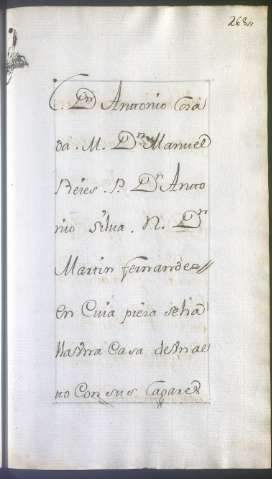 268
Dn Antonio Cora
da. M. Dn Manuel
Reies. P. Dn Anto
nio Silva. N. Dn
Martin Fernandes
en Cuia piesa se ha
lla vna Casa de
no Con sus